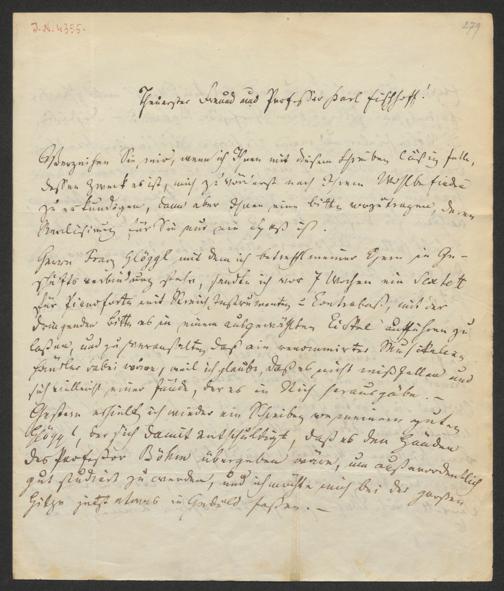 J.N. 4355.
279
Theuerster Freund und Professor Karl Fischhoff!
Verzeihen Sie, mir, wenn ich Ihnen mit diesem Schreiben lästig falle,
dessen Zweck es ist, mich zuvörderst nach Ihrem Wohlbefinden
zu erkundigen, dann aber Ihnen eine Bitte vorzutragen, deren
für Sie nur ein ist.
Herrn Franz Glöggl mit dem ich betreff meiner Opern in Ge-
schäftsverbindung stehe, sandte ich vor 7 Wochen ein Sextett
für Pianoforte mit Streich Instrumenten u Contrabaß, mit der
dringenden Bitte es in einem ausgewählten Cirkel aufführen zu
laßen, und zu veranstalten, daß ein renommirter Musikalien
händler dabei wäre, weil ich glaube, daß es nicht mißfallen und
sich vielleicht einer fände, der es in Stich herausgäbe. –
Gestern erhielt ich wieder ein Schreiben von meinem guten
Glöggl, der sich damit entschuldigt, daß es den Händen
des Professor Böhm übergeben wäre, um außerordentlich
gut studiert zu werden, und ich möchte mich bei der großen
Hitze jetzt etwas in Geduld fassen. –